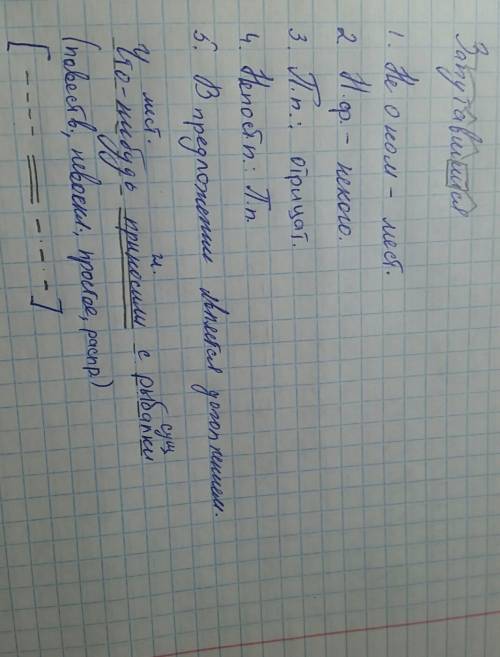 Запутавшийся
1. Не о ком - мест.
2 Н.ф. - некого.
3. П.п.: отрицат.
4. Непост.п.: П.п.
5. В предложении является дополнением.
мест. сущ
Что-нибудь приносили с рыбалки
(повеств., невоскл., простое, распр)